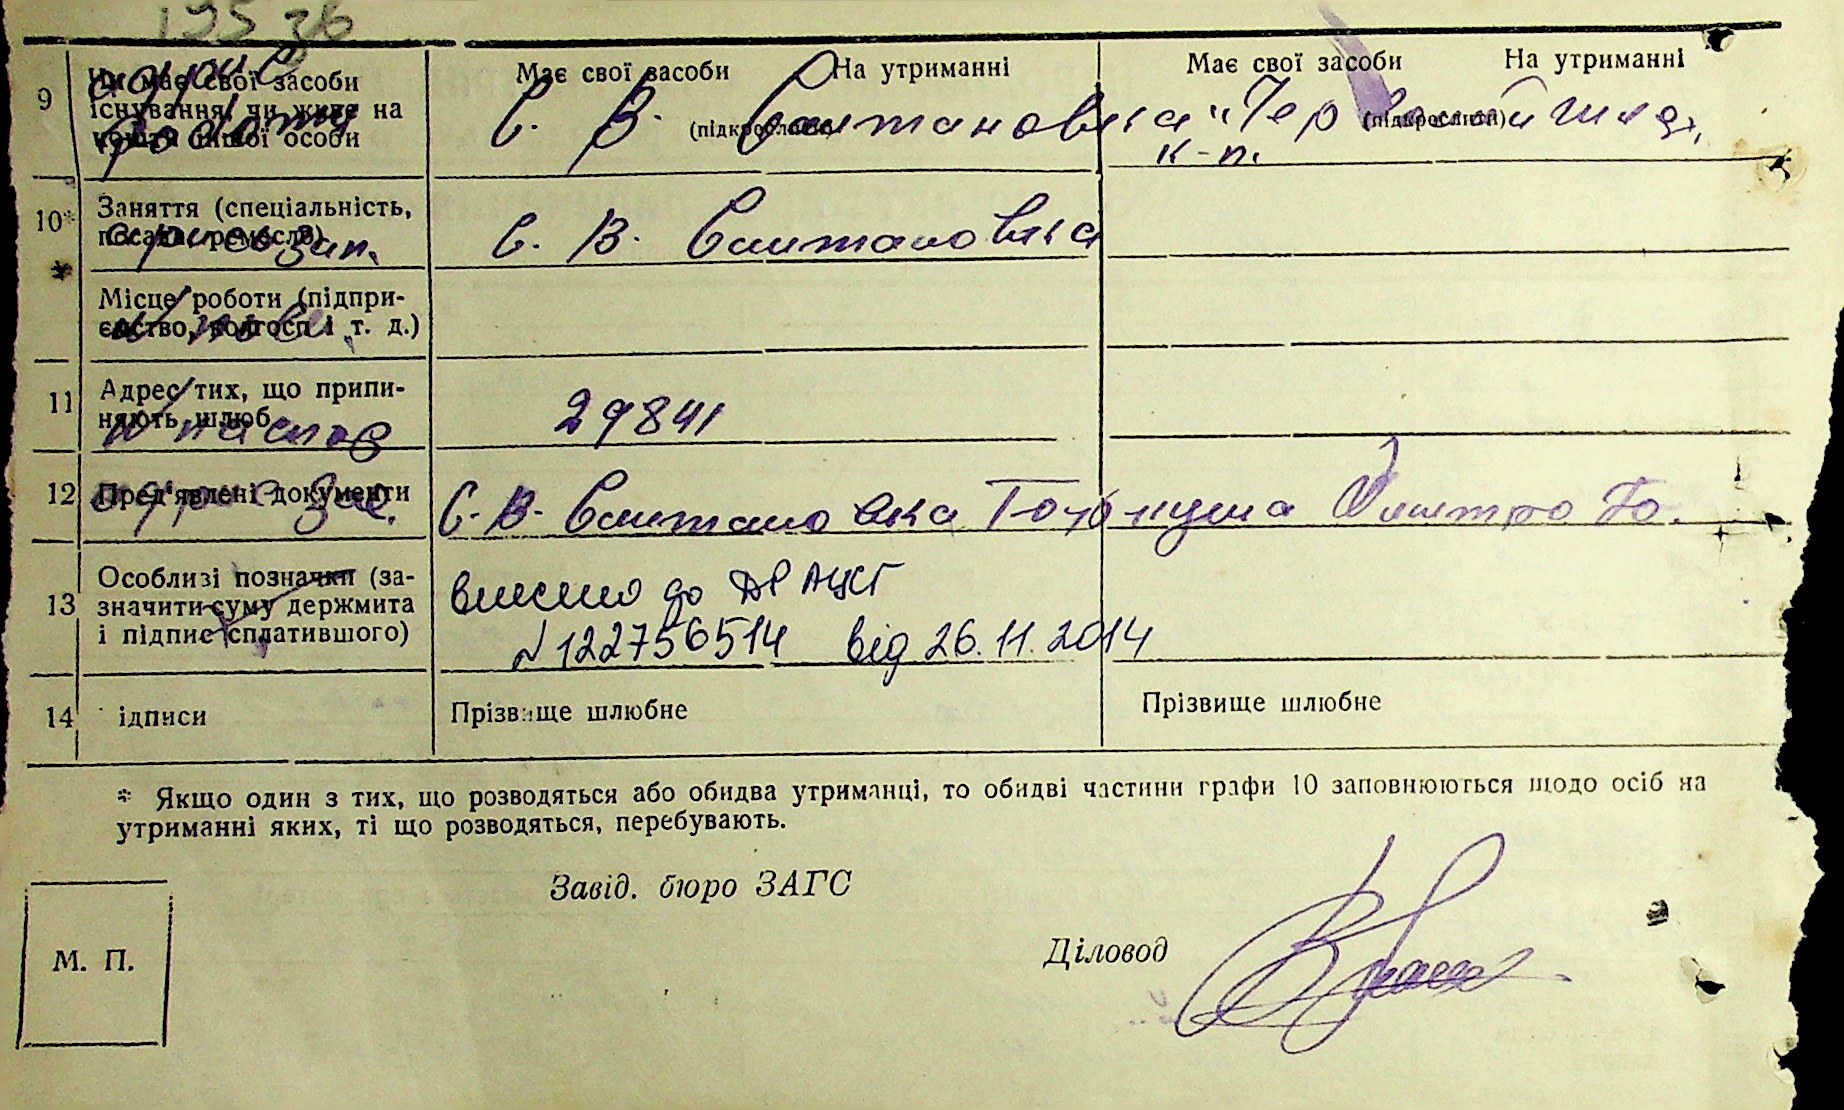 9 Чи має свої засоби існування, чи живе на кошти іншої особи
Має свої засоби На утриманні
(підкреслити)
Має свої засоби На утриманні
(підкреслити)
адрис роботи
С. В. Салтановка "Червоный шлях"
к-п.
10* Заняття (спеціальність, посада, ремесло)
адрис зап.
С. В. Салтановка
* Місце роботи (підпри-
ємство, колгосп і т. д.)
11 Адрес тих, що припи-
няють шлюб
№ паспор
29841
12 Пред'явлені документи
адрис
С. В. Салтановка Дмитро
13 Особливі позначки (за-
значити суму держмита
і підпис сплатившого)
внесено до ДРАЦСГ
№ 122756514 від 26.11.2014
14 ідписи
Прізвище шлюбне
Прізвище шлюбне
* Якщо один з тих, що розводяться або обидва утриманці, то обидві частини графи 10 заповнюються щодо осіб на
утриманні яких, ті що розводяться, перебувають.
Завід. бюро ЗАГС
М. П.
Діловод